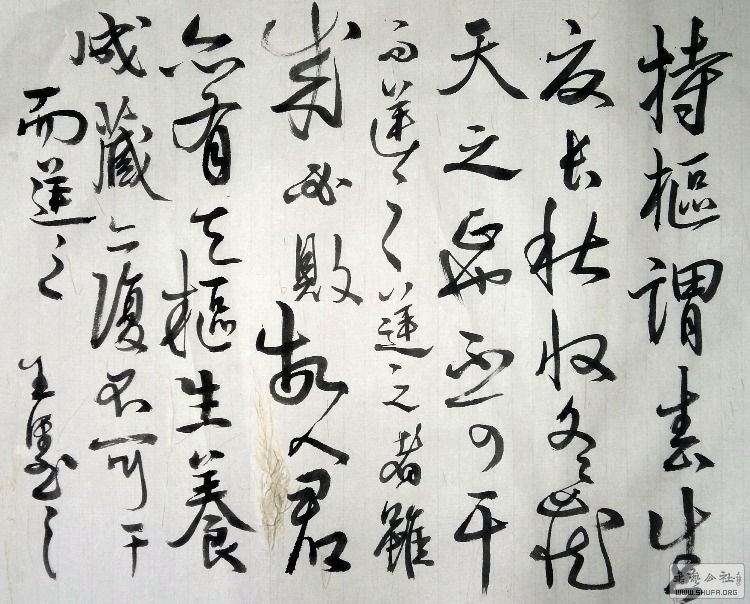 持樞謂春生
夏長秋收冬藏
天之正也不可干
而逆之逆之者雖
成必敗故人君
亦有天樞生養
成藏亦復不可干
而逆之
WWW.SHUFA.ORG